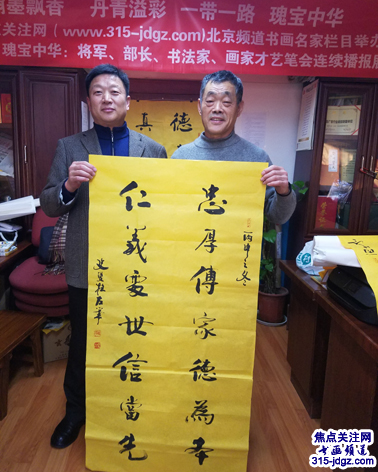 翰墨飘香 丹青溢彩 一带一路 瑰宝中华
点关注网（www.315-jdgz.com)北京频道书画名家栏目举办
瑰宝中华：将军、部长、书法家、画家才艺笔会连续播报展
真 德
丙申之冬
忠厚傳家德為本
仁義處世信當先
焦点关注网
书画频道
315-jdgz.com